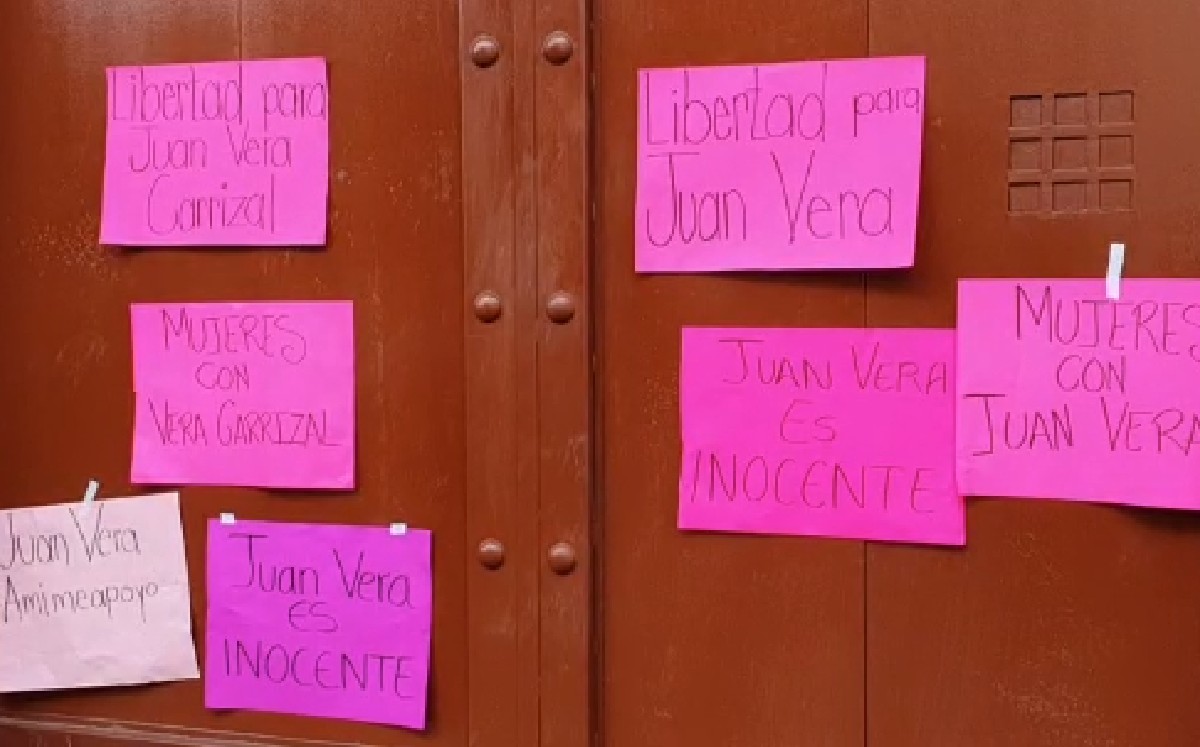 Libertad para
Juan Vera
Carrizal
MUJERES
CON
VERA CARRIZAL
Juan Vera
Amimeapoyo
Juan Vera
ES
INOCENTE
Libertad para
Juan Vera
JUAN VERA
Es
INOCENTE
MUJERES
CON
JUAN VERA